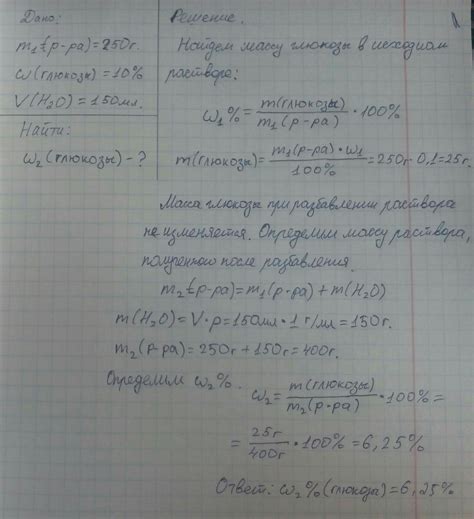 Дано:
m₁(р-ра)=250г.
ω(глюкозы)=10%
V(H₂O)=150мл.
Найти:
ω₂(глюкозы)-?
Решение.
Найдем массу глюкозы в исходном
растворе:
ω₁% = m(глюкозы)/m₁(р-ра) · 100%
m(глюкозы) = m₁(р-ра)·ω₁/100% = 250г · 0,1 = 25г.
Масса глюкозы при разбавлении раствора
не изменяется. Определим массу раствора,
полученного после разбавления.
m₂(р-ра)=m₁(р-ра)+m(H₂O)
m(H₂O)=V·ρ=150мл·1 г/мл=150г.
m₂(р-ра)=250г+150г=400г.
Определим ω₂%.
ω₂ = m(глюкозы)/m₂(р-ра) · 100% =
= 25г/400г · 100% = 6,25%
Ответ: ω₂%(глюкозы)=6,25%